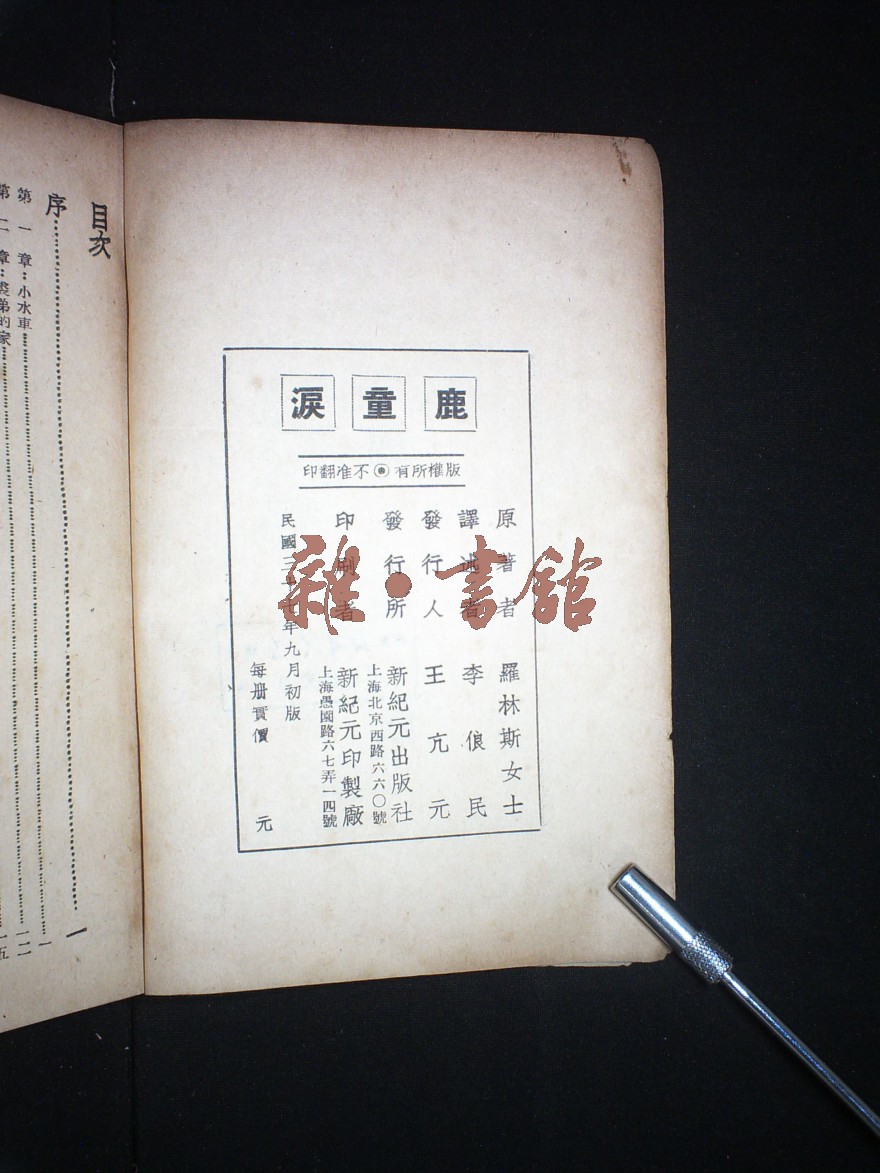 鹿童淚
版權所有 不准翻印
原著者 羅林斯女士
譯述者 李俍民
發行人 王亢元
發行所 新紀元出版社
上海北京西路六六〇號
印刷者 新紀元印製廠
上海愚園路六七弄一四號
民國三十七年九月初版
每册實價 元
目次
序……一
第一章：小水車……一
第二章：裘弟的家……一二
一五
雜·書館